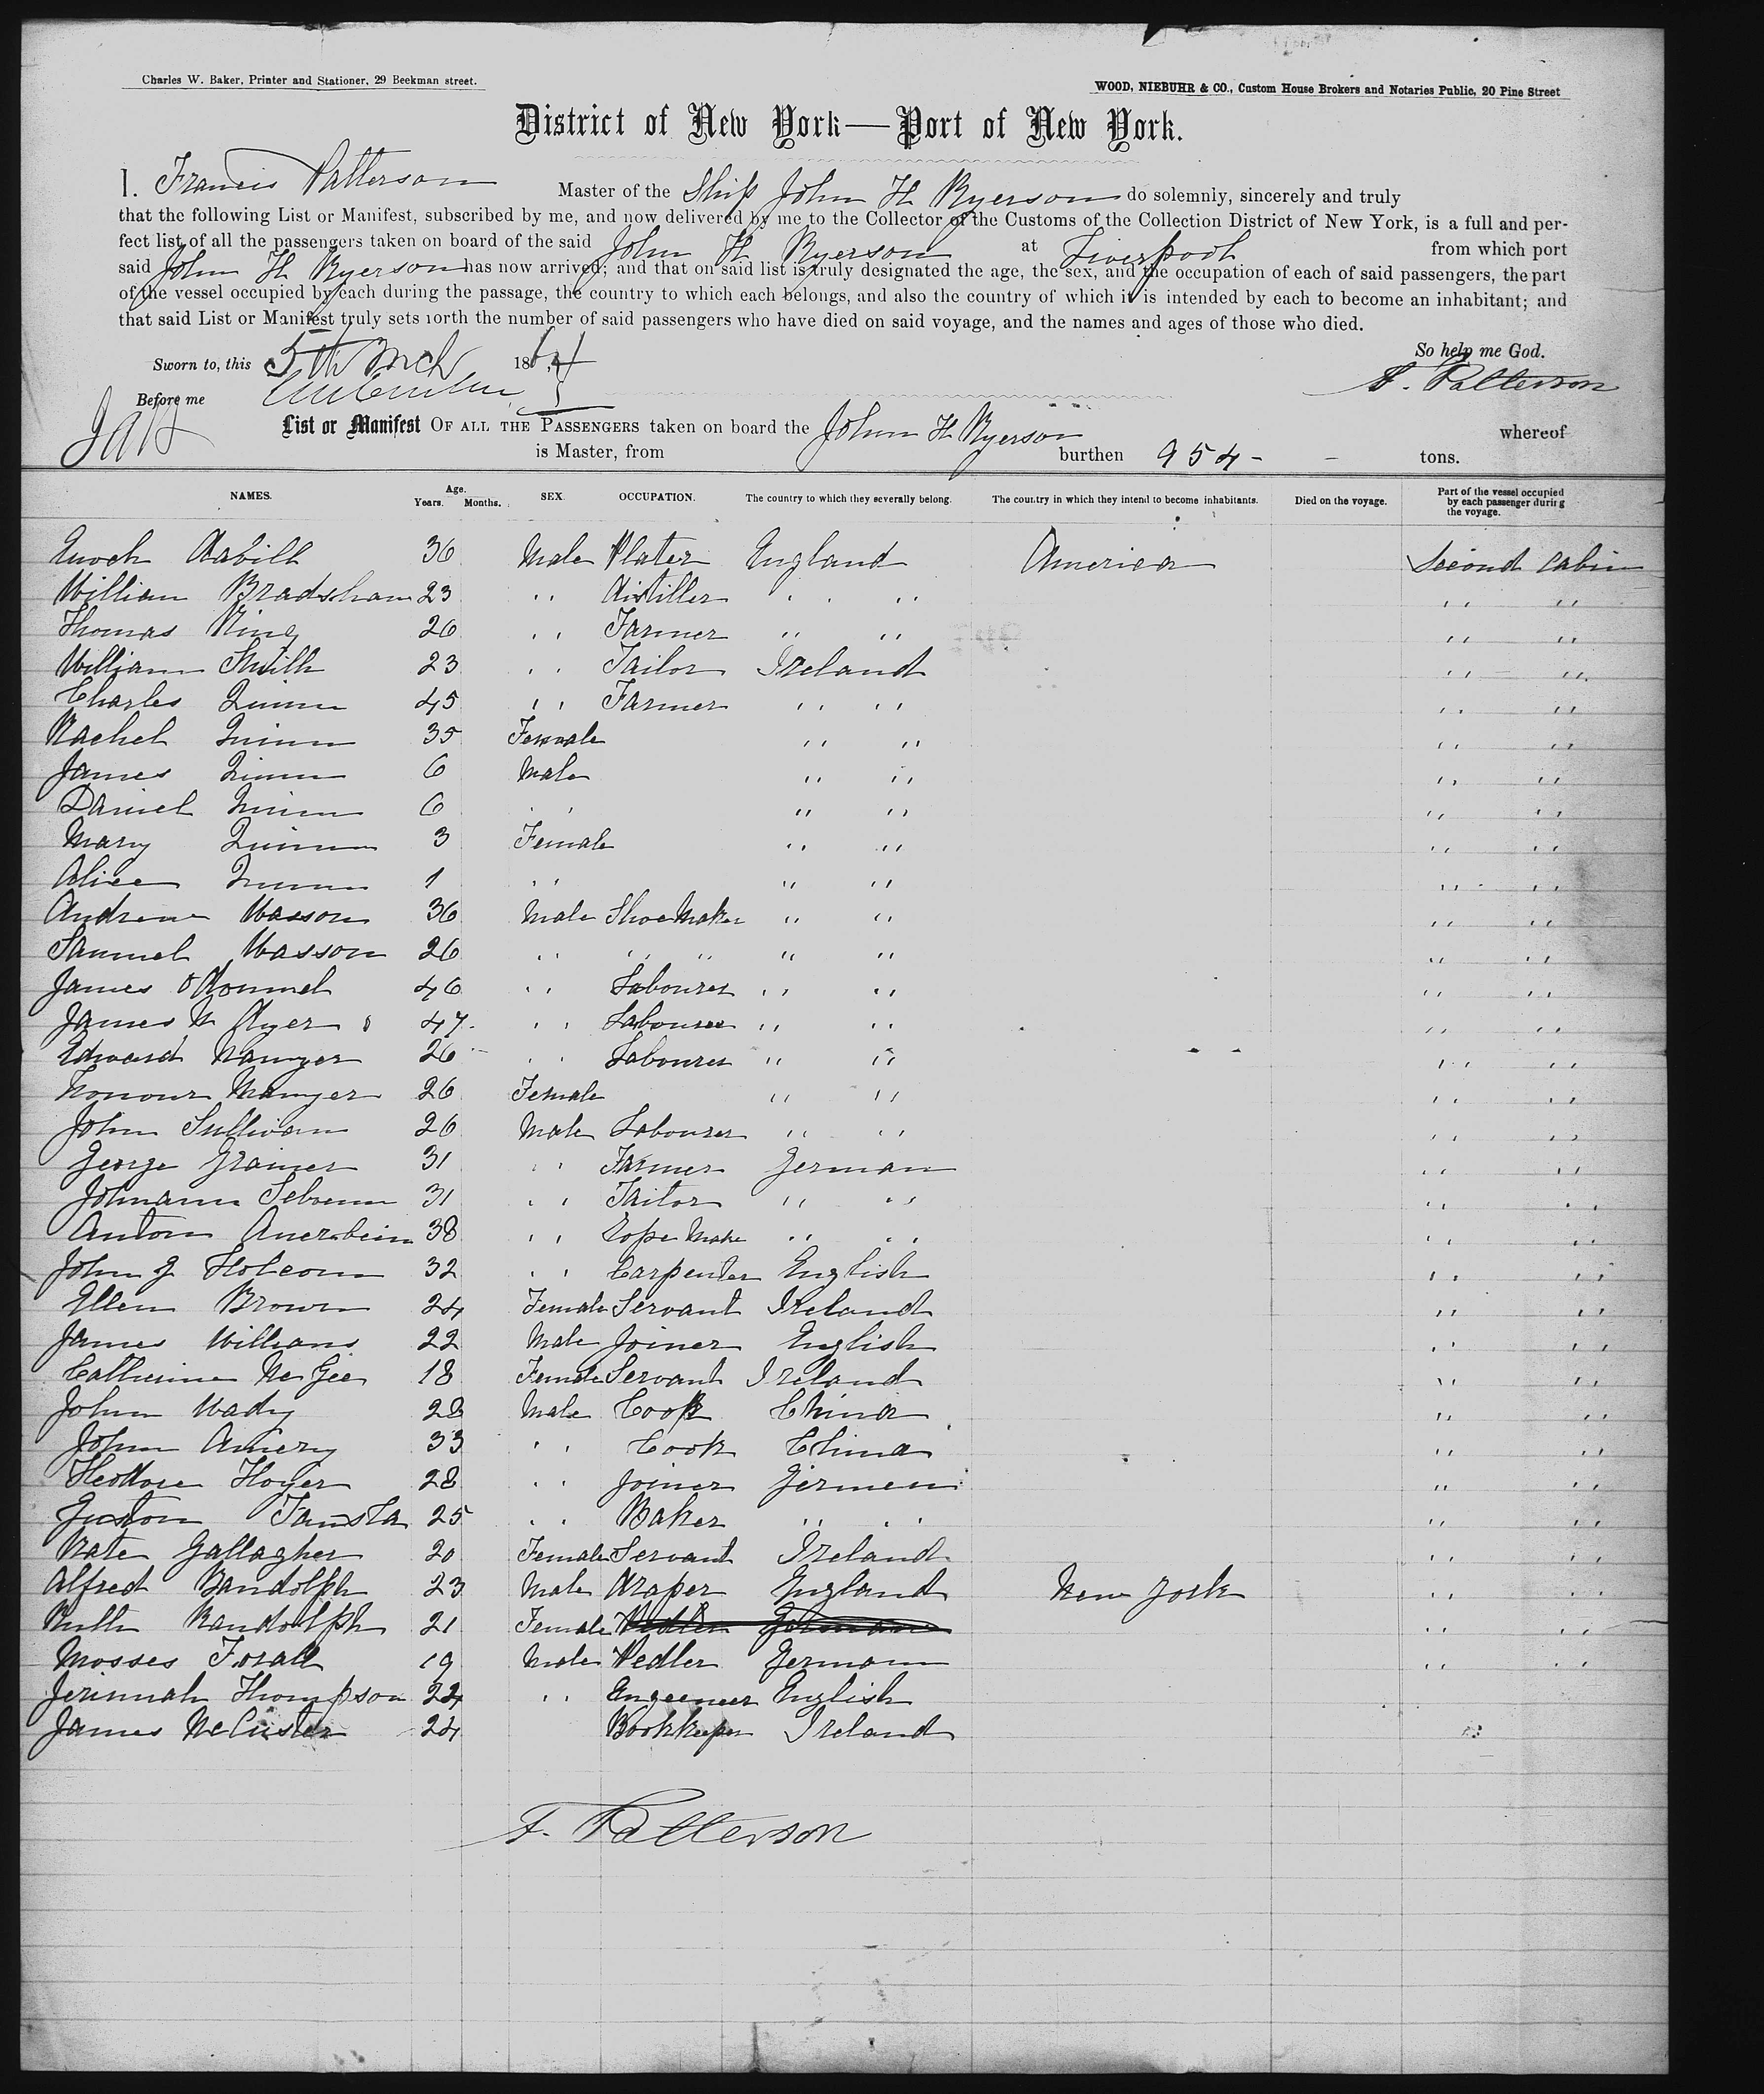 Charles W. Baker, Printer and Stationer, 29 Beekman street.
WOOD, NIEBUHR & CO., Custom House Brokers and Notaries Public, 20 Pine Street
District of New York—Port of New York.
I. Francis Patterson Master of the Ship John H Ryerson do solemnly, sincerely and truly
that the following List or Manifest, subscribed by me, and now delivered by me to the Collector of the Customs of the Collection District of New York, is a full and per-
fect list of all the passengers taken on board of the said John H Ryerson at Liverpool from which port
said John H Ryerson has now arrived; and that on said list is truly designated the age, the sex, and the occupation of each of said passengers, the part
of the vessel occupied by each during the passage, the country to which each belongs, and also the country of which it is intended by each to become an inhabitant; and
that said List or Manifest truly sets forth the number of said passengers who have died on said voyage, and the names and ages of those who died.
Sworn to, this 5th Mch 1864 So help me God.
Before me F. Patterson
List or Manifest OF ALL THE PASSENGERS taken on board the John H Ryerson whereof
is Master, from burthen 954 - - tons.
NAMES. Age. Years. Months. SEX. OCCUPATION. The country to which they severally belong. The country in which they intend to become inhabitants. Died on the voyage. Part of the vessel occupied by each passenger during the voyage.
Enoch 36 Male Plater England America Second Cabin
William Bradshaw 23 " Distiller " " " "
Thomas King 26 " Farmer " " " "
William Smith 23 " Tailor Ireland " "
Charles Quinn 45 " Farmer " " " "
Rachel Quinn 35 Female " " " "
James Quinn 6 Male " " " "
Daniel Quinn 6 " " " " "
Mary Quinn 3 Female " " " "
Alice Quinn 1 " " " " "
Andrew Wasson 36 Male Shoe Maker " " " "
Samuel Wasson 26 " " " " " " "
James O'Donnel 46 " Labourer " " " "
James 47 " Labourer " " " "
Edward 26 " Labourer " " " "
Honour Manger 26 Female " " " "
John Sullivan 26 Male Labourer " " " "
George Grainer 31 " Farmer German " "
Johnann 31 " Tailor " " " "
Anton Auerbein 38 " Rope Make " " " "
John J Holcom 32 " Carpenter English " "
Ellen Brown 24 Female Servant Ireland " "
James Williams 22 Male Joiner English " "
Catherine McGee 18 Female Servant Ireland " "
John Wady 28 Male Cook China " "
John Amery 33 " Cook China " "
Theodore Hoyer 28 " Joiner Germen " "
25 " Baker " " " "
Kate Gallagher 20 Female Servant Ireland " "
Alfred Randolph 23 Male Draper England New York " "
Ruth Randolph 21 Female Pedler German " "
Mosses 19 Male Pedler German " "
Jerimiah Thompson 24 " Engeeneer English
James McCuster 24 Bookkeeper Ireland "
F. Patterson